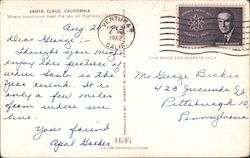 SANTA CLAUS, CALIFORNIA
Where mountains meet the sea on Highway
VENTURA
CALIF.
1962
THIS SPACE FOR ADDRESS ONLY
Aug. 2
Dear George:-
Thought you might
enjoy this picture of
where Santa is the
year round. It is
only a few miles
from where we
live.
Your friend
Mr George
Pittsburgh 10,
Pennsylvania
Hi-Fi
COLOR REPRODUCTIONS